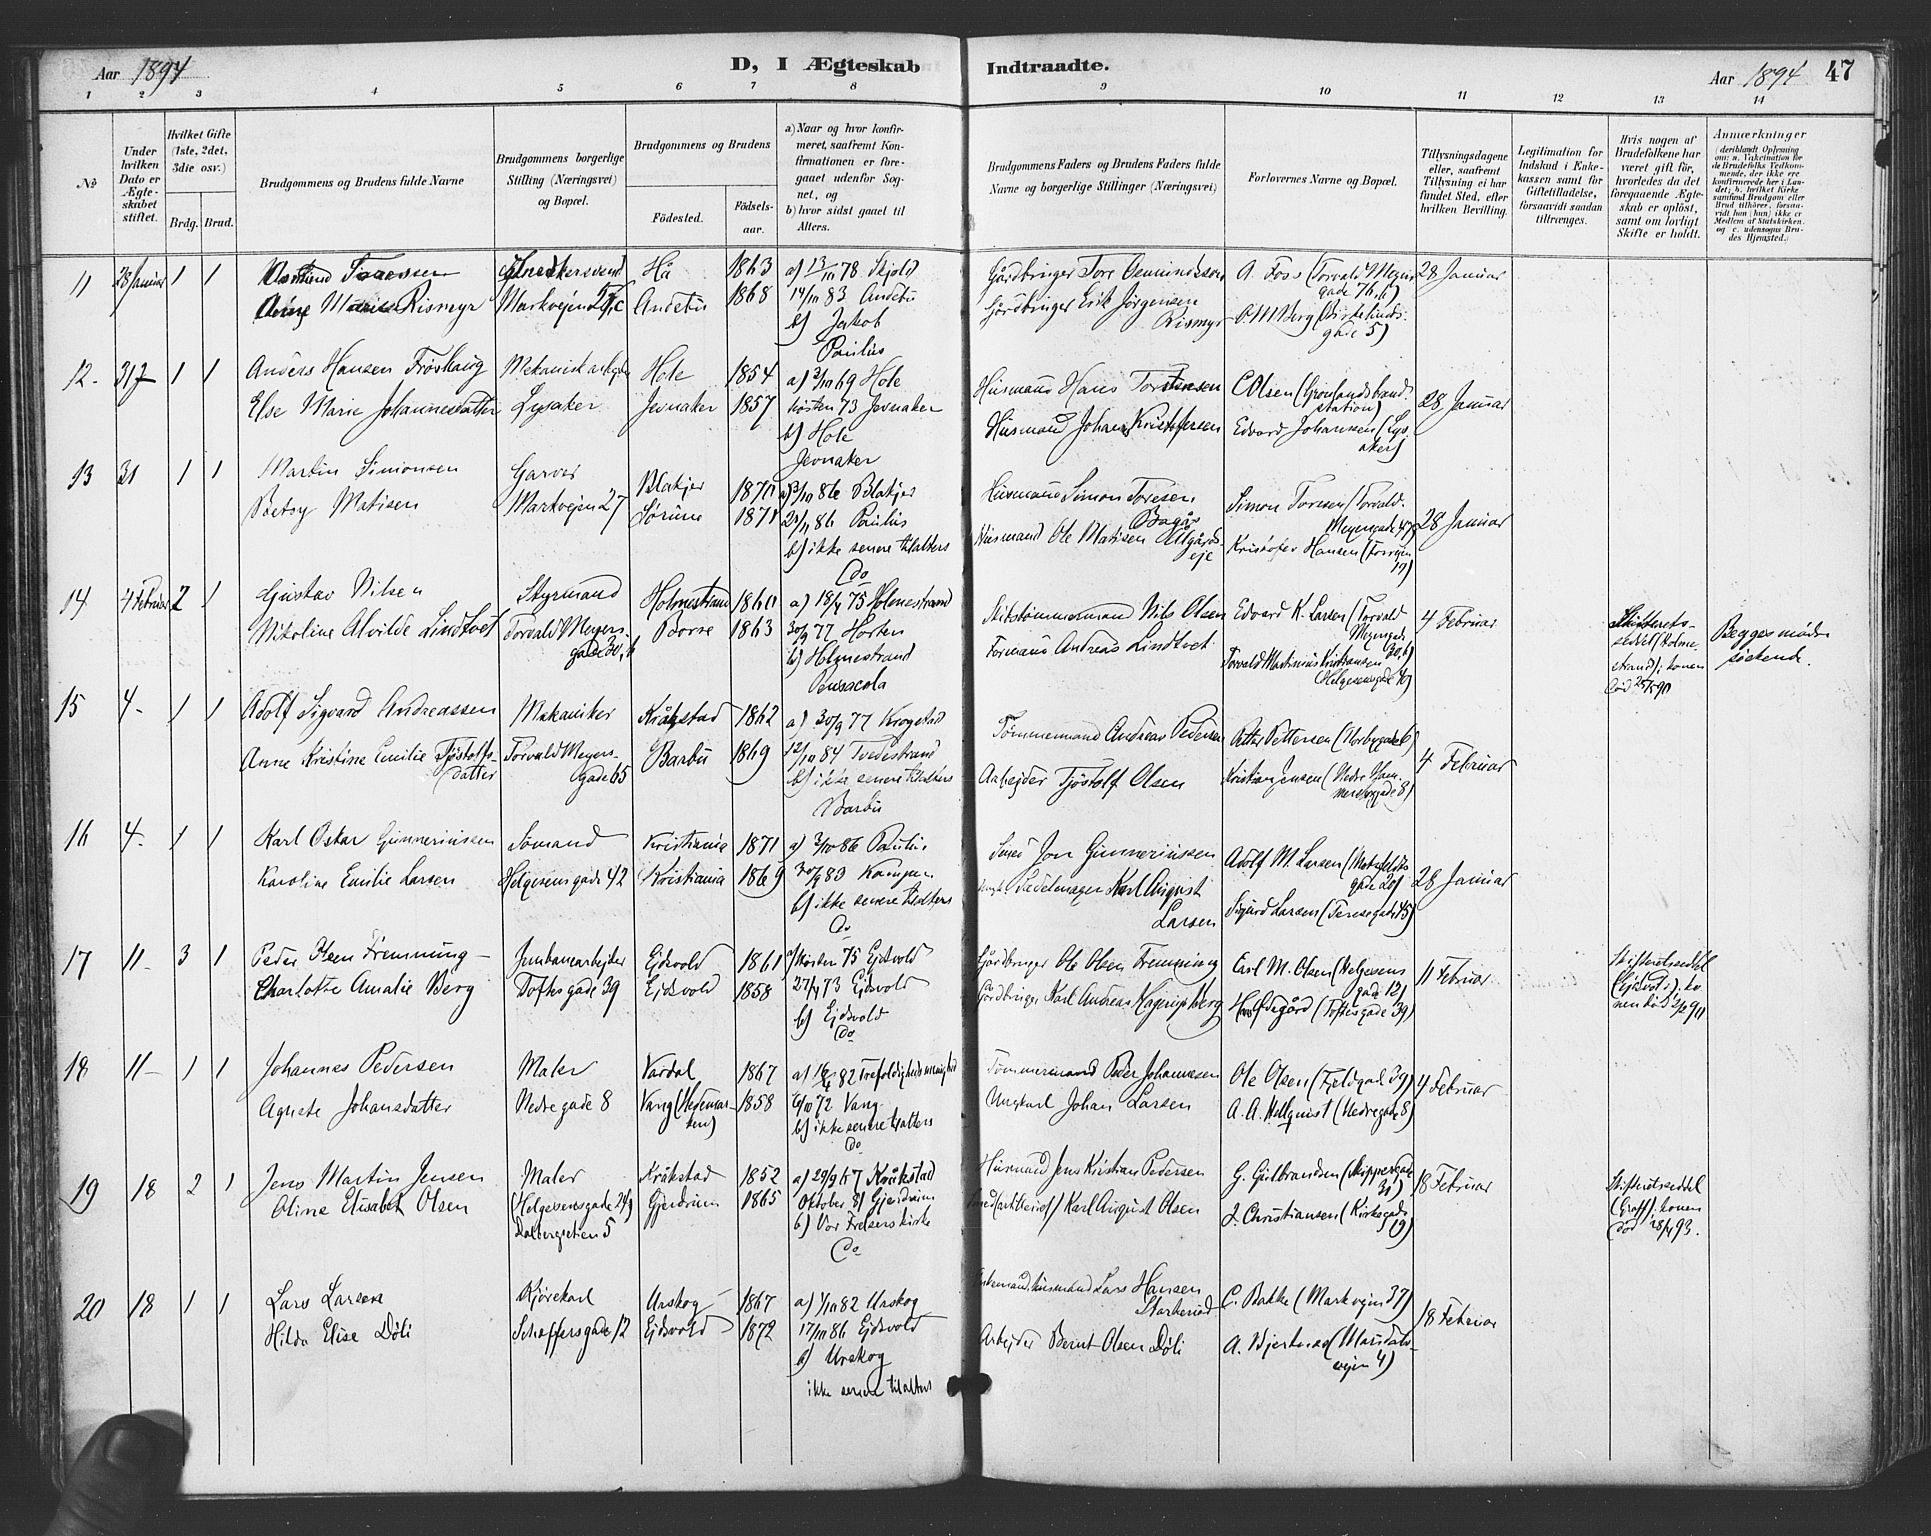 Aar 1894
D, I Ægteskab Indtraadte.
Aar 1894 47
1 2 3 4 5 6 7 8 9 10 11 12 13 14
No
Under hvilken Dato er Ægteskabet stiftet.
Hvilket Gifte (1ste, 2det, 3die osv.)
Brdg. Brud.
Brudgommens og Brudens fulde Navne
Brudgommens borgerlige Stilling (Næringsvei) og Bopæl.
Brudgommens og Brudens
Fødested.
Fødselsaar.
a) Naar og hvor konfirmeret, saafremt Konfirmationen er foregaaet udenfor Sognet, og
b) hvor sidst gaaet til Alters.
Brudgommens Faders og Brudens Faders fulde Navne og borgerlige Stillinger (Næringsvei)
Forlovernes Navne og Bopæl.
Tillysningsdagene eller, saafremt Tillysning ei har fundet Sted, efter hvilken Bevilling.
Legitimation for Indskud i Enkekassen samt for Giftetilladelse, forsaavidt saadan tiltrænges.
Hvis nogen af Brudefolkene har været gift før, hvorledes da det foregaaende Ægteskab er opløst, samt om lovligt Skifte er holdt.
Anmærkninger (deriblandt Oplysning om: a. Vakcination for de Brudefolks Vedkommende, der ikke ere konfirmerede her i Landet; b. hvilket Kirkesamfund Brudgom eller Brud tilhører, forsaavidt han (hun) ikke er Medlem af Statskirken, og c. udensogns Brudes Hjemsted.)
11 28 Januar 1 1
Snedkersvend Hå 1863 a) 13/10 78 Skjold
Gårdbruger Tore
A. Foss (Torvald Meyersgade 76,b) 28 Januar
Anne Rismyr Markvejen Andebu 1868 14/10 83 Andebu
b) Jakob
Paulus
Gårdbruger Erik Jørgensen Rismyr
O. M. Berg (Birkelundsgade 5)
12 - 31/ 1 1
Anders Hansen Frøshaug Mekanisk arbejder Hole 1854 a) 3/10 69 Hole
Husmand Hans Torstensen
C Olsen (Grønlands brandstation) 28 Januar
Else Marie Johannesdatter Lysaker Jevnaker 1857 høsten 73 Jevnaker
b) Hole
Jevnaker
Husmand Johan Kristofersen
Edvard Johansen (Lysaker)
13 31 1 1
Martin Simonsen Garver Blakjer 1870 a) 3/10 86 Blakjer
Husmand Simon Toresen
Simon Toresen (Torvald Meyersgade 47) 28 Januar
Betsy Matisen Markvejen 27 Sørum 1871 86 Paulus
b) ikke senere tilalters
Do
Husmand Ole Matisen
Kristofer Hansen
14 4 Februar 2 1
Gustav Nilsen Styrmand Holmestrand 1860 a) 18/4 75 Holmestrand
Skibstømmermand Nils Olsen
Edvard K. Larsen (Torvald Meyersgade 30,b) 4 Februar
Skifteretsseddel (Holmestrand); konen død 25/5 90
Begges mødre søekende.
Nikoline Alvilde Lindtvet Torvald Meyersgade 30, b Borre 1863 30/9 77 Horten
b) Holmestrand
Pensacola
Formand Andreas Lindtvet
Torvald Martinius Kristiansen Helgesensgade
15 4 - 1 1
Adolf Sigvard Andreassen Mekaniker Kråkstad 1862 a) 30/9 77 Krogstad
Tømmermand Andreas Pedersen
Petter Pettersen (Norbygade 6) 4 Februar
Anne Kristine Emilie Tjøstolfsdatter Torvald Meyersgade 65 Barbu 1869 12/10 84 Tvedestrand
b) ikke senere tilalters
Barbu
Arbejder Tjøstolf Olsen
Kristian Jensen (Nedre Hammersborggade 8)
16 4 - 1 1
Karl Oskar Gunneriussen Sømand Kristiania 1871 a) 3/10 86 Paulus
Smed Jon Gunneriussen
Adolf M. Larsen 28 Januar
Karoline Emilie Larsen Helgesensgade 42 Kristiania 1869 Kampen
b) ikke senere tilalters
Do
Sadelmager Karl August Larsen
Sigurd Larsen (Teresegade 45)
17 11 - 3 1
Peder Olsen Fremming Jernbanearbejder Ejdsvold 1861 a) høsten 75 Ejdsvold
Gårdbruger Ole Olsen Fremming
Carl M. Olsen (Helgesensgade 12) 11 Februar
Skifteretsseddel (Ejdsvold); konen død
Charlotte Amalie Berg Toftesgade 39 Ejdsvold 1858 27/4 73 Ejdsvold
b) Ejdsvold
Do
Gårdbruger Karl Andreas Berg
(Toftesgade 39)
18 11 - 1 1
Johannes Pedersen Maler Vardal 1867 a) 16/4 82 Trefoldighedsmenighed
Tømmermand Peder Johannesen
Ole Olsen (Fjeldgade 39) 4 Februar
Agnete Johansdatter Nedregade 8 Vang (Hedemarken) 1858 6/10 72 Vang
b) ikke senere tilalters
Do
Ungkarl Johan Larsen
A. A. Hellquist (Nedregade 8)
19 18 2 1
Jens Martin Jensen Maler Kråkstad 1852 a) 29/9 67 Kråkstad
Husmand Jens Kristian Pedersen
G. Gulbrandsen (Skippergade 31) 18 Februar
Skifteretsseddel (Graff); konen død 28/4 93.
Oline Elisabet Olsen (Helgesensgade 24) Dalbergstien 5 Gjerdrum 1865 Oktober 81 Gjerdrum
b) Vor Frelsers kirke
Do
Karl August Olsen
J. Christiansen (Kirkegade 19)
20 18 1 1
Lars Larsen Kjørekarl Urskog 1867 a) 1/10 82 Urskog
Husmand Lars Hansen
C. Bakke (Markvejen 37) 18 Februar
Hilda Elise Døli Schøffersgade 12 Ejdsvold 1872 17/10 86 Ejdsvold
b) Urskog
ikke senere tilalters
Arbejder Bernt Olsen Døli
A. Bjerknæs (Maridalsvejen 4)